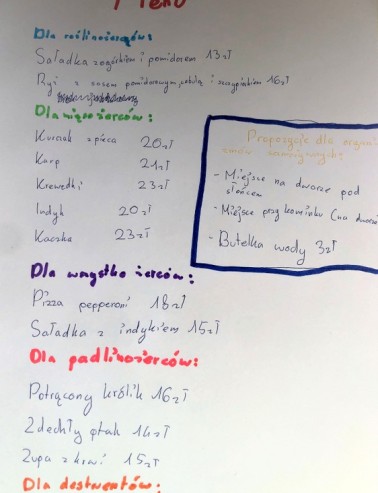 Dla roślinożerców:
Sałatka z ogórkiem i pomidorem 13zł
Ryż z sosem pomidorowym, cebulą i szczypiorkiem 16zł
Dla mięsożerców:
Kurczak z pieca 20zł
Karp 21zł
Krewetki 23zł
Indyk 20zł
Kaczka 23zł
Propozycje dla
- Miejsce na dworze pod
słońcem
- Miejsce przy kominku (na dworze
- Butelka wody 3zł
Dla wszystko żerców:
Pizza pepperoni 18zł
Sałatka z indykiem 15zł
Dla padlinożerców:
Potrącony królik 16zł
Zdechły ptak 14zł
Zupa z krwi 15zł